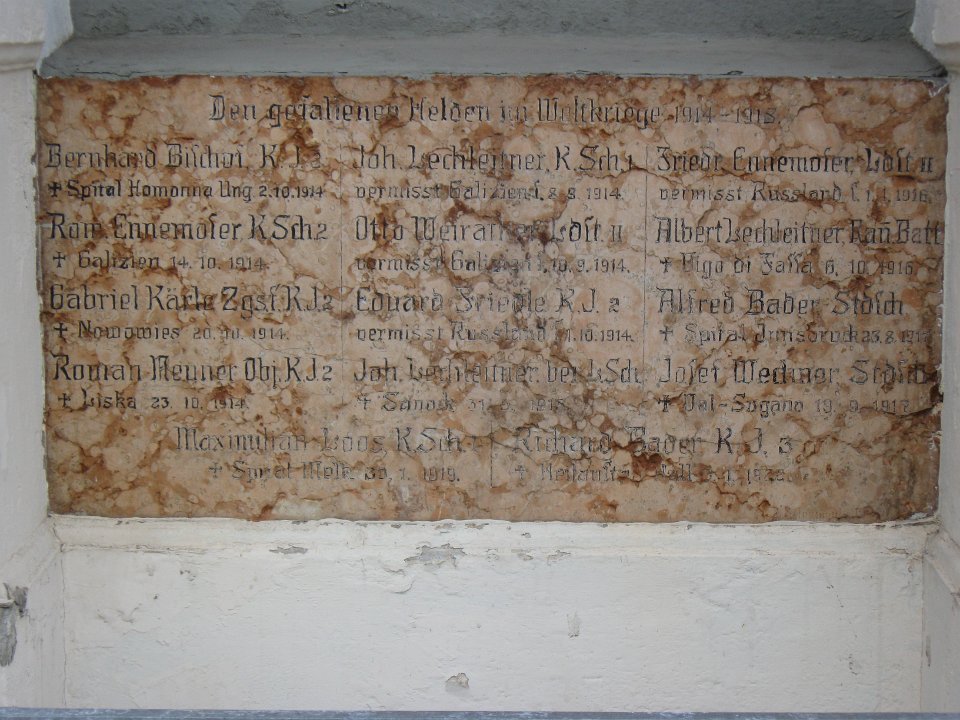 Den gefallenen Helden im Weltkriege 1914-1918.
Bernhard Bischof, K.J. 2
+ Spital Homonna Ung. 2.10.1914
Rom. Ennemoser K.Sch.2
+ Galizien 14.10.1914.
Gabriel Kärle Zgsf. K.J.2
+ Nowowies 20.10.1914.
Roman Neuner Obj. K.J.2
+ Liska 23.10.1914.
Joh. Lechleitner, K.Sch.1
vermisst Galizien s. 8.9.1914.
Otto Weirather Ldst. II
vermisst Galizien s. 10.9.1914.
Eduard Friedle K.J. 2
vermisst Russland 1.10.1914.
Joh. Lechleitner, bei L.Sch.
+ Sanok 1915.
Friedr. Ennemoser, Ldst. II
vermisst Russland s. 1.1.1916.
Albert Lechleitner, Kan. Batt.
+ Vigo di Fassa 6.10.1916.
Alfred Bader Stdsch.
+ Spital Innsbruck 23.8.1917
Josef Wechner, Stdsch.
+ Val-Sugana 19.9.1917.
Maximilian Loos, K.Sch.1
+ Spital Melk 30.1.1919.
Richard Bader K.J. 3
+ Hall 1.1922.